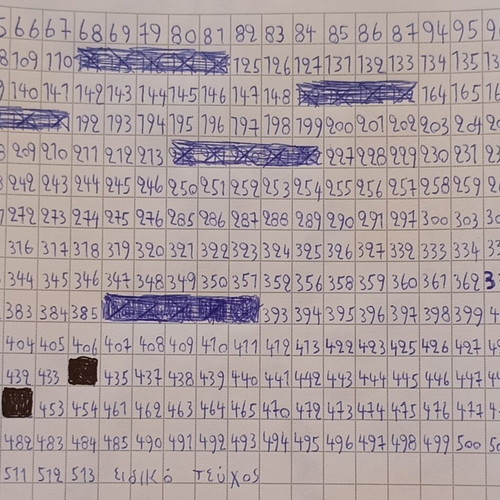 66 67 68 69 79 80 81 82 83 84 85 86 87 94 95
109 110 125 126 127 131 132 133 134 135
140 141 142 143 144 145 146 147 148 164 165
192 193 194 195 196 197 198 199 200 201 202 203 204
209 210 211 212 213 227 228 229 230 231
242 243 244 245 246 250 251 252 253 254 255 256 257 258 259
272 273 274 275 276 285 286 287 288 289 290 291 297 300 303
316 317 318 319 320 321 322 323 324 325 326 327 332 333 334
344 345 346 347 348 349 350 351 352 356 358 359 360 361 362
383 384 385 393 394 395 396 397 398 399
404 405 406 407 408 409 410 411 412 413 422 423 425 426 427
432 433 435 437 438 439 440 441 442 443 444 445 446 447
453 454 461 462 463 464 465 470 472 473 474 475 476 477
482 483 484 485 490 491 492 493 494 495 496 497 498 499 500
511 512 513 ειδικό τεύχος